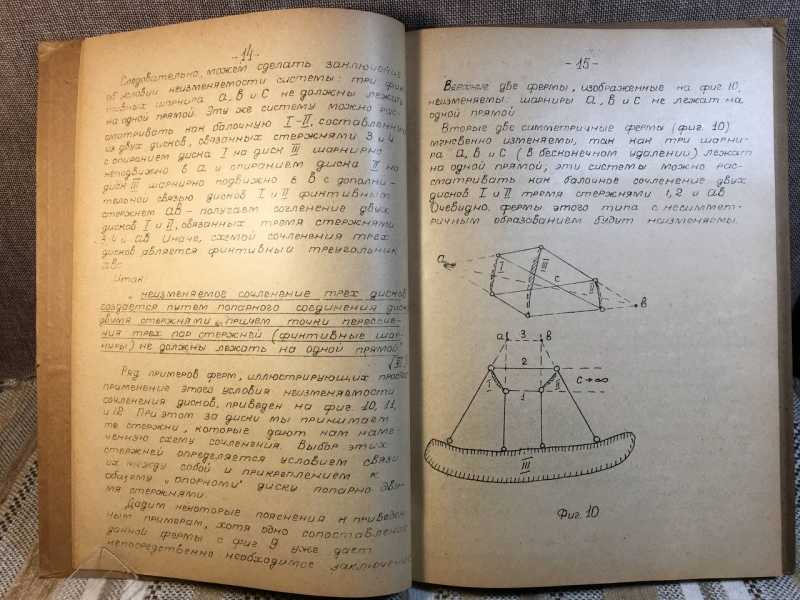 -14-
Следовательно, можем сделать заключение
об условии неизменяемости системы: три фик-
тивных шарнира a, в и с не должны лежать
на одной прямой. Эту же систему можно рас-
сматривать как балочную I-II, составленную
из двух дисков, связанных стержнями 3 и 4
с опиранием диска I на диск III шарнирно
неподвижно в a и опиранием диска II на
диск III шарнирно подвижно в в с дополни-
тельной связью дисков I и II фиктивным
стержнем aв - получаем сочленение двух
дисков I и II, связанных тремя стержнями
3,4 и aв. Иначе, схемой сочленения трех
дисков является фиктивный треугольник
Итак:
„неизменяемое сочленение трех дисков
создается путем попарного соединения дисков
двумя стержнями, причем точки пересече-
ния трех пар стержней (фиктивные шар-
ниры) не должны лежать на одной прямой"
(III)
Ряд примеров ферм, иллюстрирующих простое
применение этого условия неизменяемости
сочленения дисков, приведен на фиг. 10, 11,
и 12. При этом за диски мы принимаем
те стержни, которые дают нам наме-
ченную схему сочленения. Выбор этих
стержней определяется условием связи
их между собой и прикреплением к
общему „опорному" диску попарно дву-
мя стержнями.
Дадим некоторые пояснения к приведен-
ным примерам, хотя одно сопоставление
данной фермы с фиг 9 уже дает
непосредственно необходимое заключение
-15-
Верхние две фермы, изображенные на фиг. 10,
неизменяемы; шарниры a, в и с не лежат на
одной прямой.
Вторые две симметричные фермы (фиг. 10)
мгновенно изменяемы, так как три шарни-
ра a, в и с (в бесконечном удалении) лежат
на одной прямой; эти системы можно рас-
сматривать как балочное сочленение двух
дисков I и II тремя стержнями 1,2 и aв.
Очевидно, фермы этого типа с несиммет-
ричным образованием будут неизменяемы.
a
I
III
c
II
в
a
3
в
2
I
II
c→∞
1
III
Фиг. 10